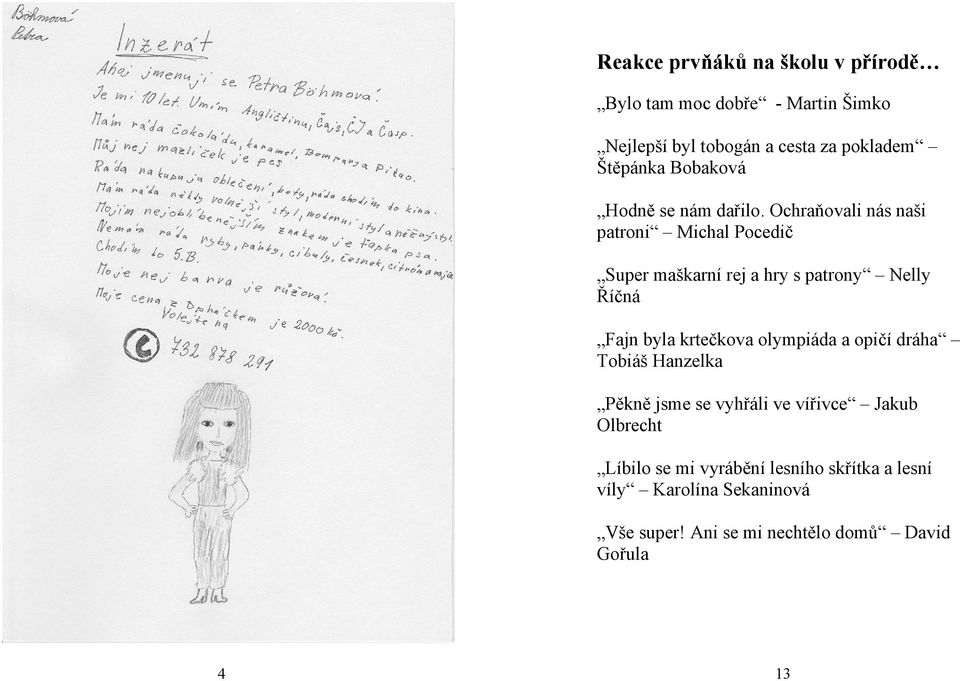 Böhmová
Petra
Inzerát
Ahoj jmenuji se Petra Böhmová.
Je mi 10 let. Umím Angličtinu, Čajs, ČJ a Časp.
Mám ráda čokoládu, karamel, Bompari a Pikao.
Můj nej mazlíček je pes
Ráda nakupuju oblečení, boty, ráda chodím do kina.
Mám ráda někdy volnější styl, moderní styl a něžný styl.
Mojim nejoblíbenějším znakem je ťapka psa.
Nemám ráda ryby, párky, cibuly, česnek, citrón a
Chodím do 5.B.
Moje nej barva je růžová.
Moje cena z Dpháčkem je 2000 kč.
Volejte na
732 878 291
4
Reakce prvňáků na školu v přírodě…
„Bylo tam moc dobře“ - Martin Šimko
„Nejlepší byl tobogán a cesta za pokladem“ –
Štěpánka Bobaková
„Hodně se nám dařilo. Ochraňovali nás naši
patroni“ – Michal Pocedič
„Super maškarní rej a hry s patrony“ – Nelly
Říčná
„Fajn byla krtečkova olympiáda a opičí dráha“ –
Tobiáš Hanzelka
„Pěkně jsme se vyhřáli ve vířivce“ – Jakub
Olbrecht
„Líbilo se mi vyrábění lesního skřítka a lesní
víly“ – Karolína Sekaninová
„Vše super! Ani se mi nechtělo domů“ – David
Gořula
13